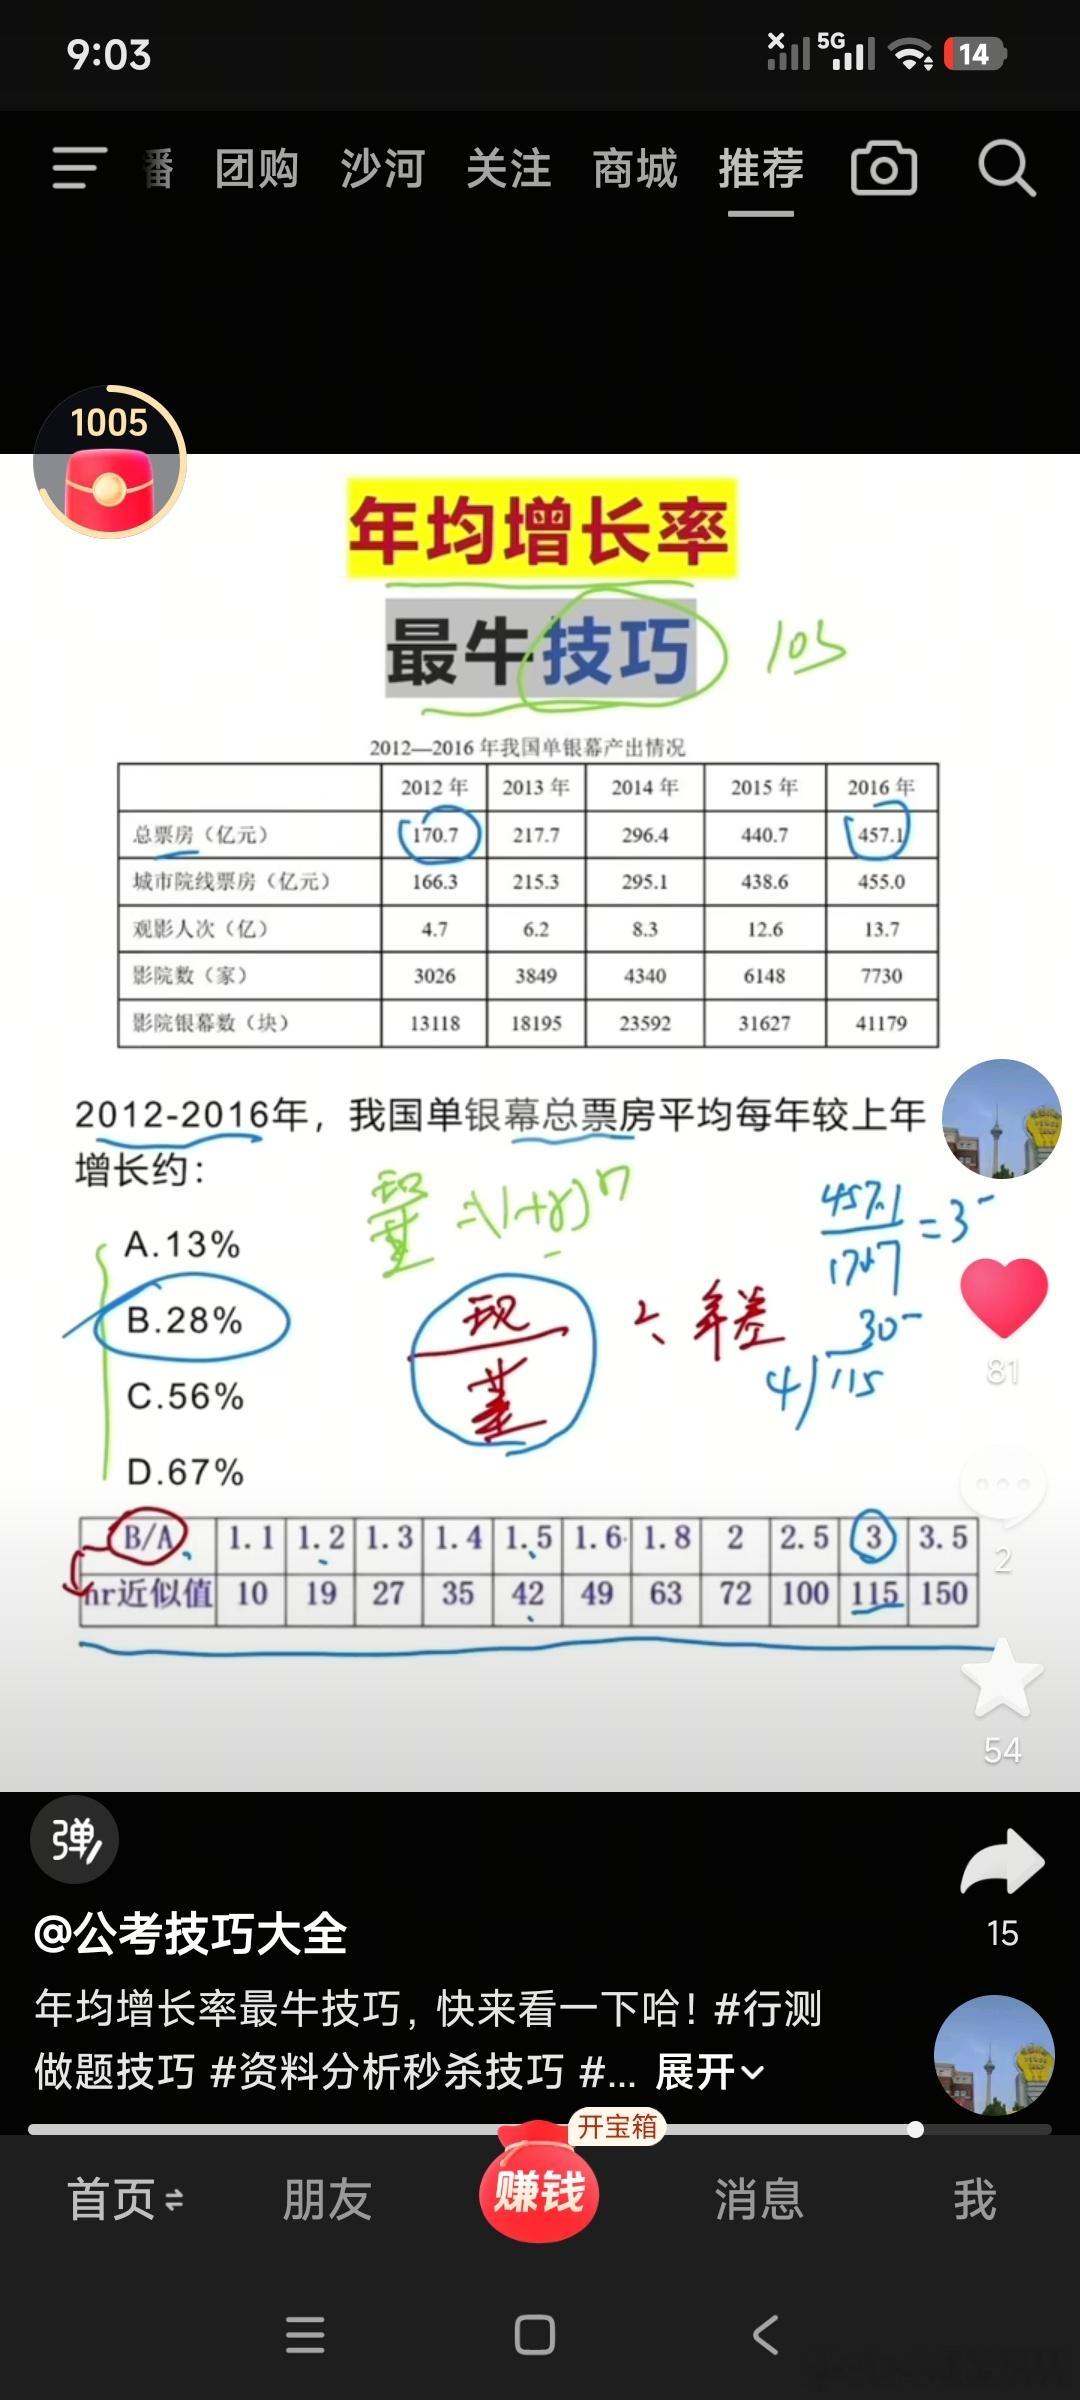 9:03
5G
14
播 团购 沙河 关注 商城 推荐
1005
年均增长率
最牛技巧
10s
2012—2016 年我国单银幕产出情况
2012 年 2013 年 2014 年 2015 年 2016 年
总票房（亿元） 170.7 217.7 296.4 440.7 457.1
城市院线票房（亿元） 166.3 215.3 295.1 438.6 455.0
观影人次（亿） 4.7 6.2 8.3 12.6 13.7
影院数（家） 3026 3849 4340 6148 7730
影院银幕数（块） 13118 18195 23592 31627 41179
2012-2016年，我国单银幕总票房平均每年较上年
增长约：
现
基 =(1+r)ⁿ
457.1
170.7 = 3⁻
A.13%
B.28%
C.56%
D.67%
现
基
2、年差
30⁻
4)115
81
B/A 1.1 1.2 1.3 1.4 1.5 1.6 1.8 2 2.5 3 3.5
nr近似值 10 19 27 35 42 49 63 72 100 115 150
2
54
弹
@公考技巧大全
15
年均增长率最牛技巧，快来看一下哈！#行测
做题技巧 #资料分析秒杀技巧 #... 展开
开宝箱
首页 朋友 赚钱 消息 我